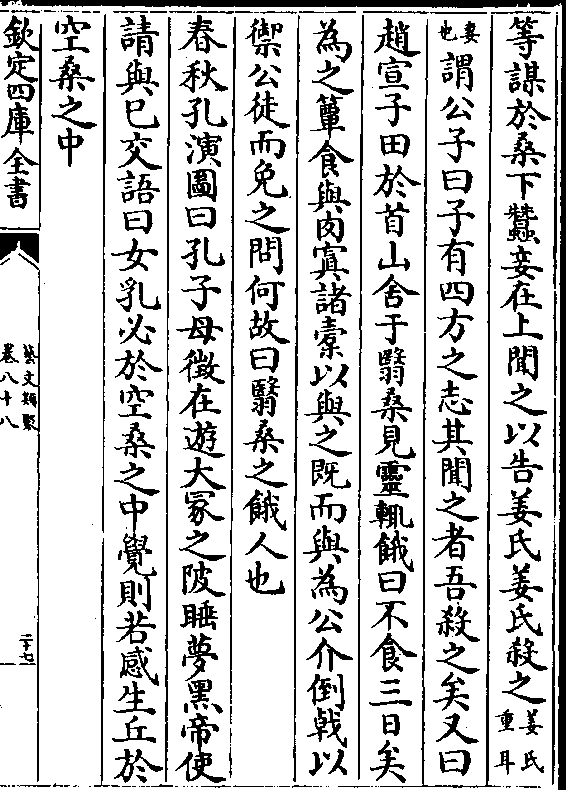 等謀於桑下蠶妾在上聞之以告姜氏姜氏殺之姜氏重耳
妻也謂公子曰子有四方之志其聞之者吾殺之矣又曰
趙宣子田於首山舍于翳桑見靈輒餓曰不食三日矣
為之簞食與肉寘諸橐以與之既而與為公介倒戟以
禦公徒而免之問何故曰翳桑之餓人也
春秋孔演圖曰孔子母徵在遊大冢之陂睡夢黑帝使
請與已交語曰女乳必於空桑之中覺則若感生丘於
空桑之中
欽定四庫全書
藝文類聚
卷八十八
二十七